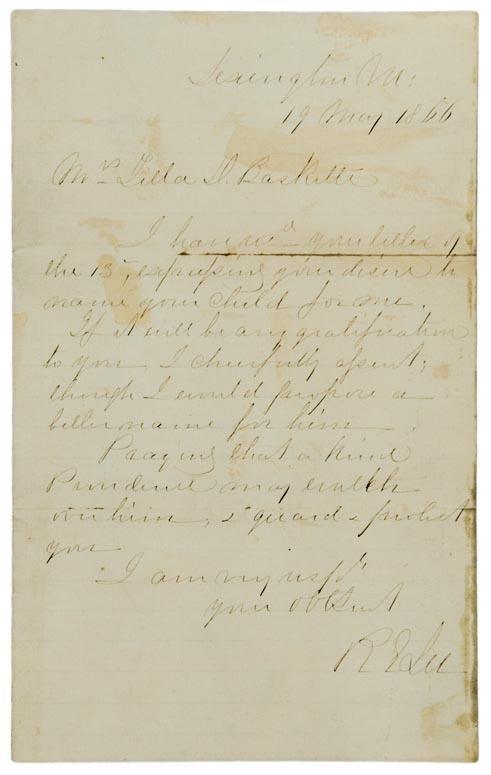 Lexington Va:
19 May 1866
Mrs Lilla D. Baskette
I have recd your letter of
the 13, expressing your desire to
name your child for me.
If it will be any gratification
to you I cheerfully assent;
though I could propose a
better name for him.
Praying that a kind
Providence may watch
over him, & guard & protect
you
I am very respy
your obt Servt
R E Lee